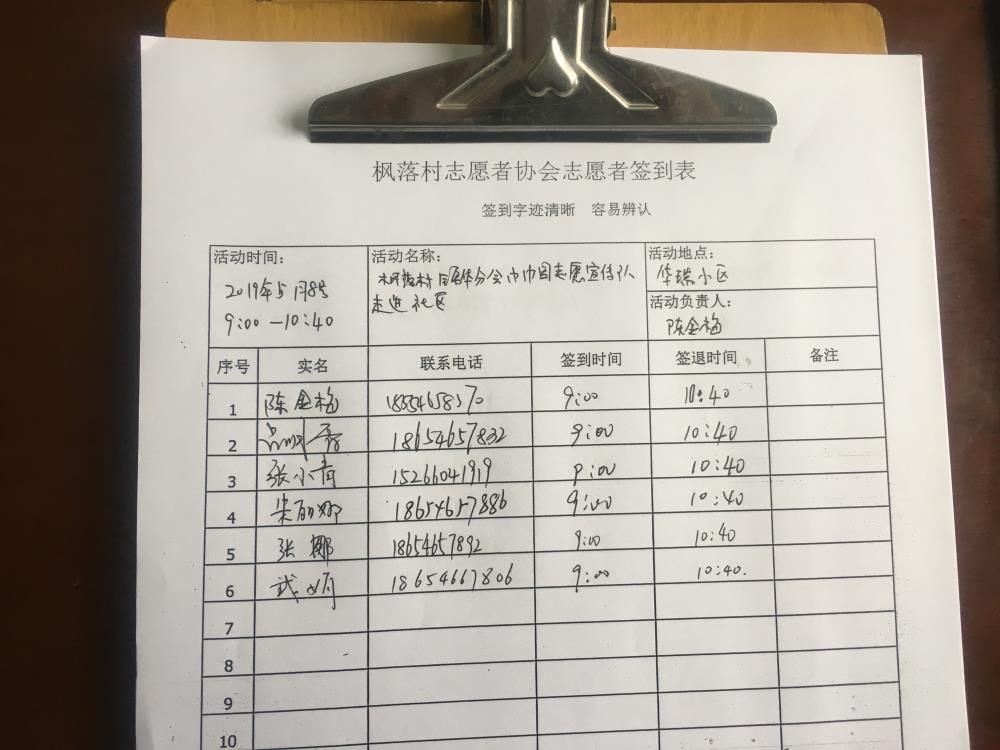 枫落村志愿者协会志愿者签到表
签到字迹清晰 容易辨认
活动时间: 活动名称: 活动地点:
2019年5月8号
9:00-10:40
枫落村 分会巾帼志愿宣传队
走进社区
华瑞小区
活动负责人:
陈金梅
序号 实名 联系电话 签到时间 签退时间 备注
1 陈金梅 9:00 10:40
2 18654657832 9:00 10:40
3 张小青 15266041919 9:00 10:40
4 朱丽娜 18654657886 9:00 10:40
5 张娜 18654657892 9:00 10:40
6 武娟 18654667806 9:00 10:40.
7
8
9
10